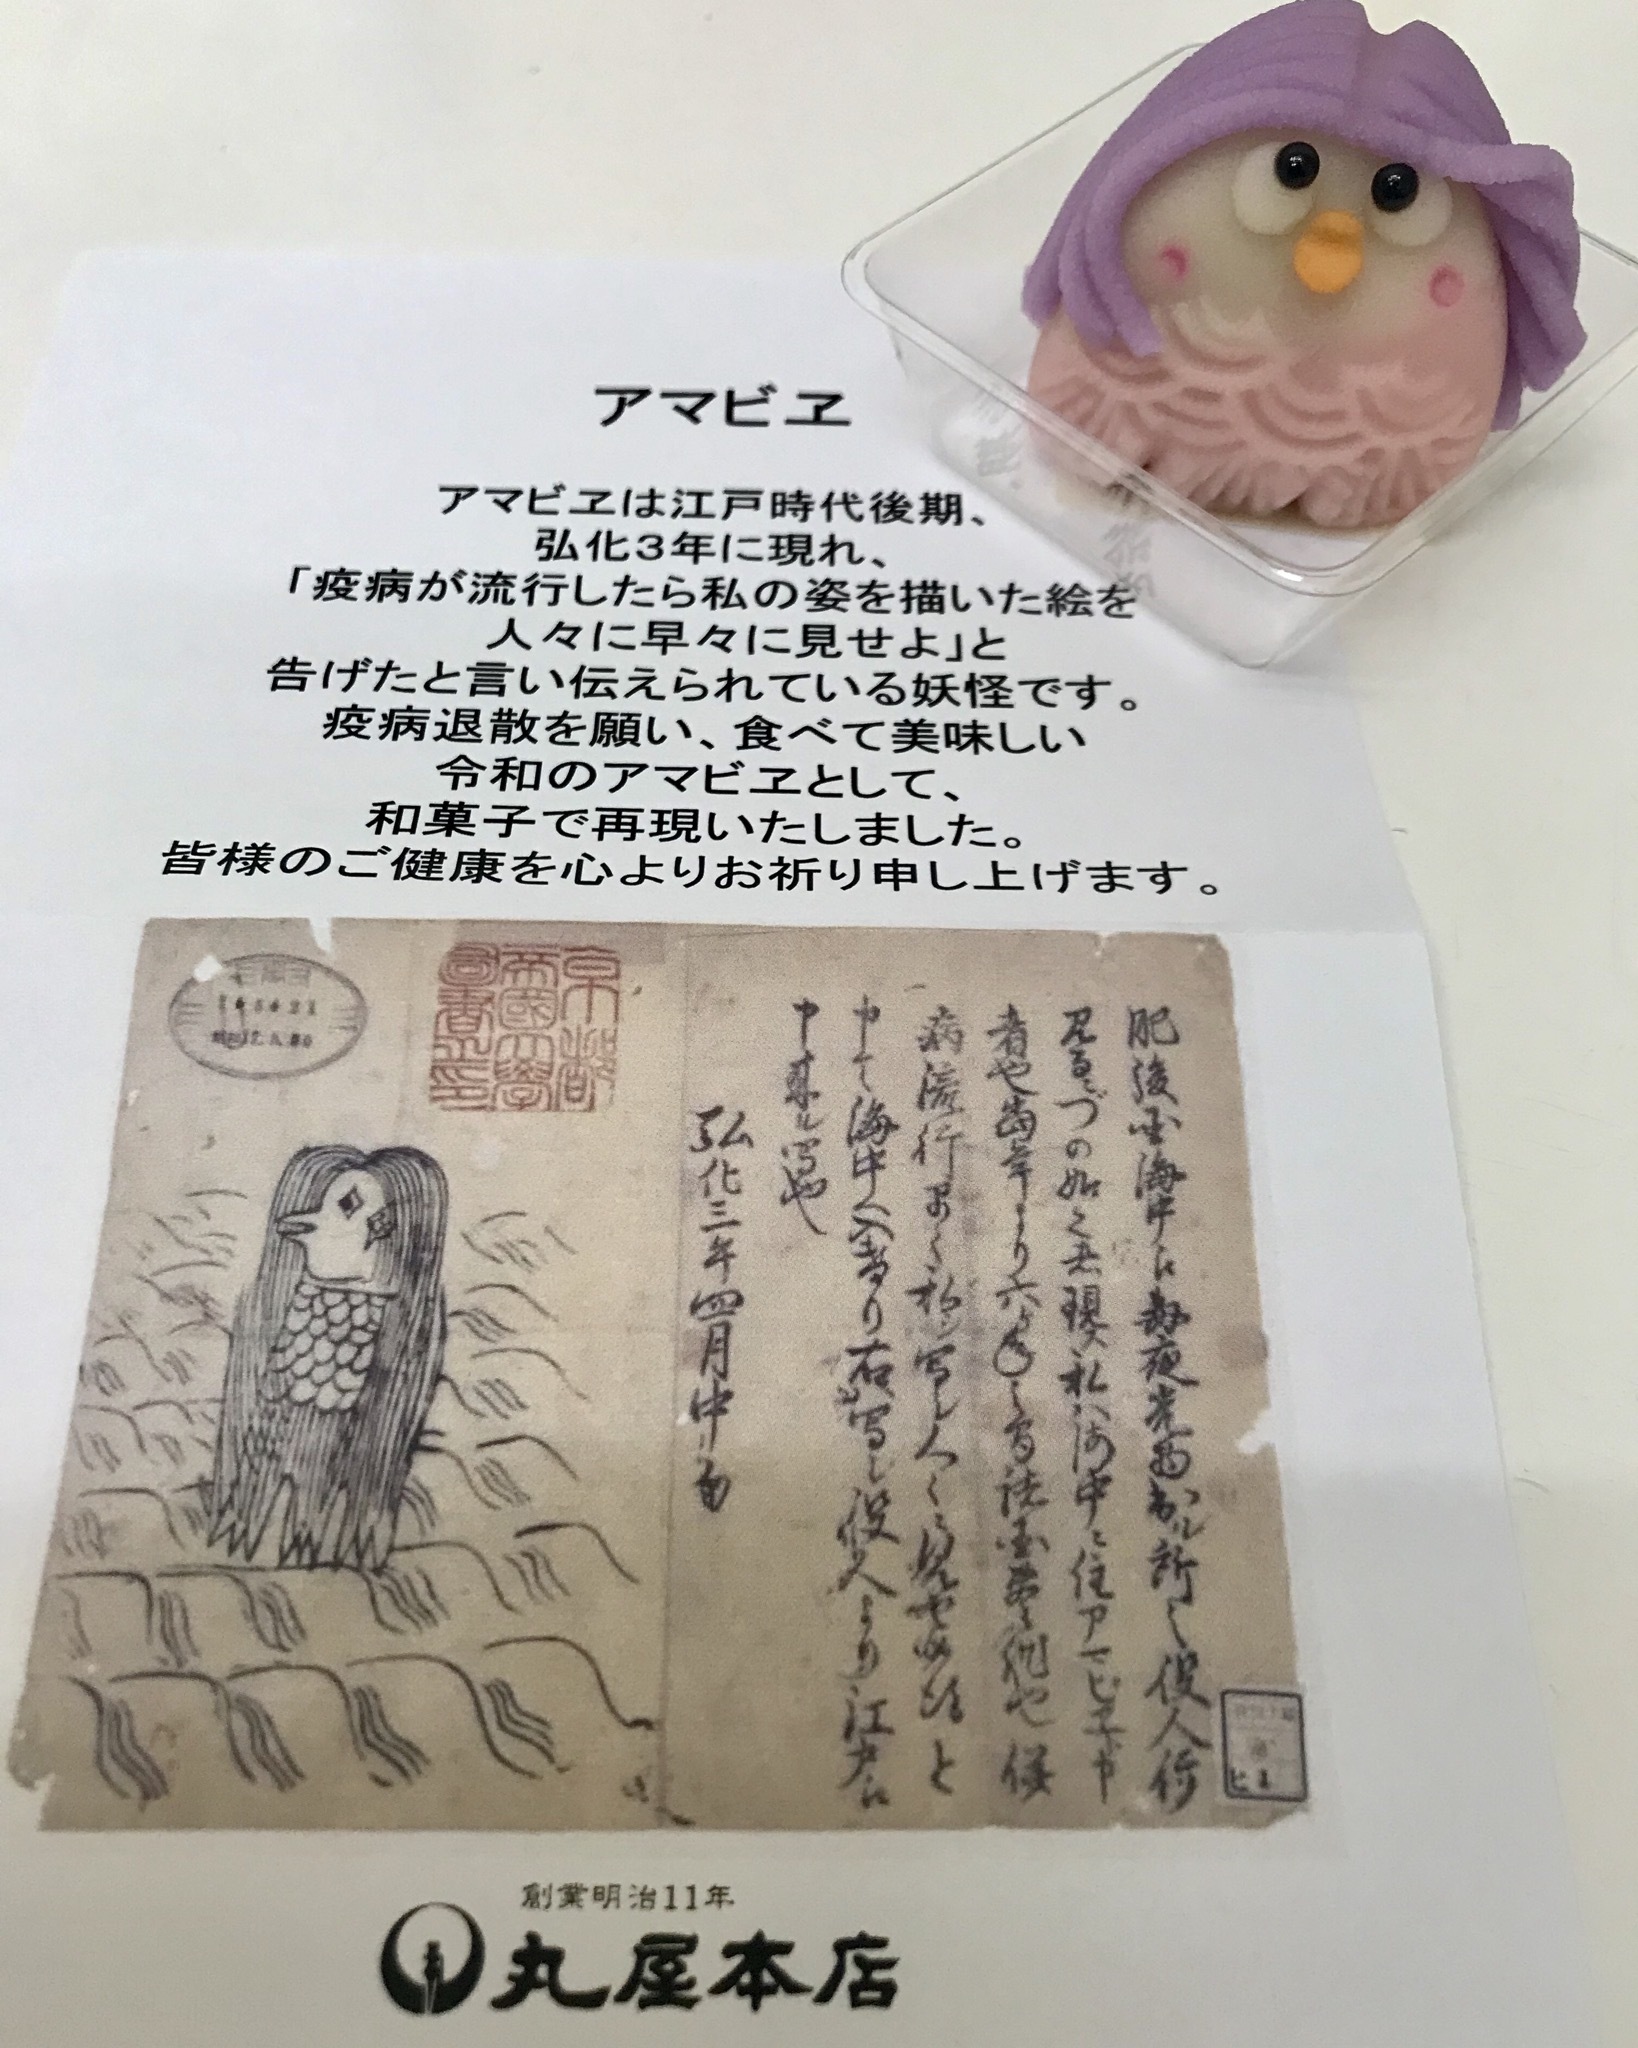 アマビヱ
アマビヱは江戸時代後期、
弘化3年に現れ、
「疫病が流行したら私の姿を描いた絵を
人々に早々に見せよ」と
告げたと言い伝えられている妖怪です。
疫病退散を願い、食べて美味しい
令和のアマビヱとして、
和菓子で再現いたしました。
皆様のご健康を心よりお祈り申し上げます。
京都
帝國大學
圖書之印
肥後国海中に毎夜光物出ル所之役人行
見るニづの如く者現ス私ハ海中ニ住アマビヱト申
者也當年より六ヶ年之間諸国豊作也併
病流行早々私ヲ写シ人々ニ見セ候得と
申て海中へ入けり右写シ役人より江戸に
申来ル写也
弘化三年四月中旬
創業明治11年
丸屋本店